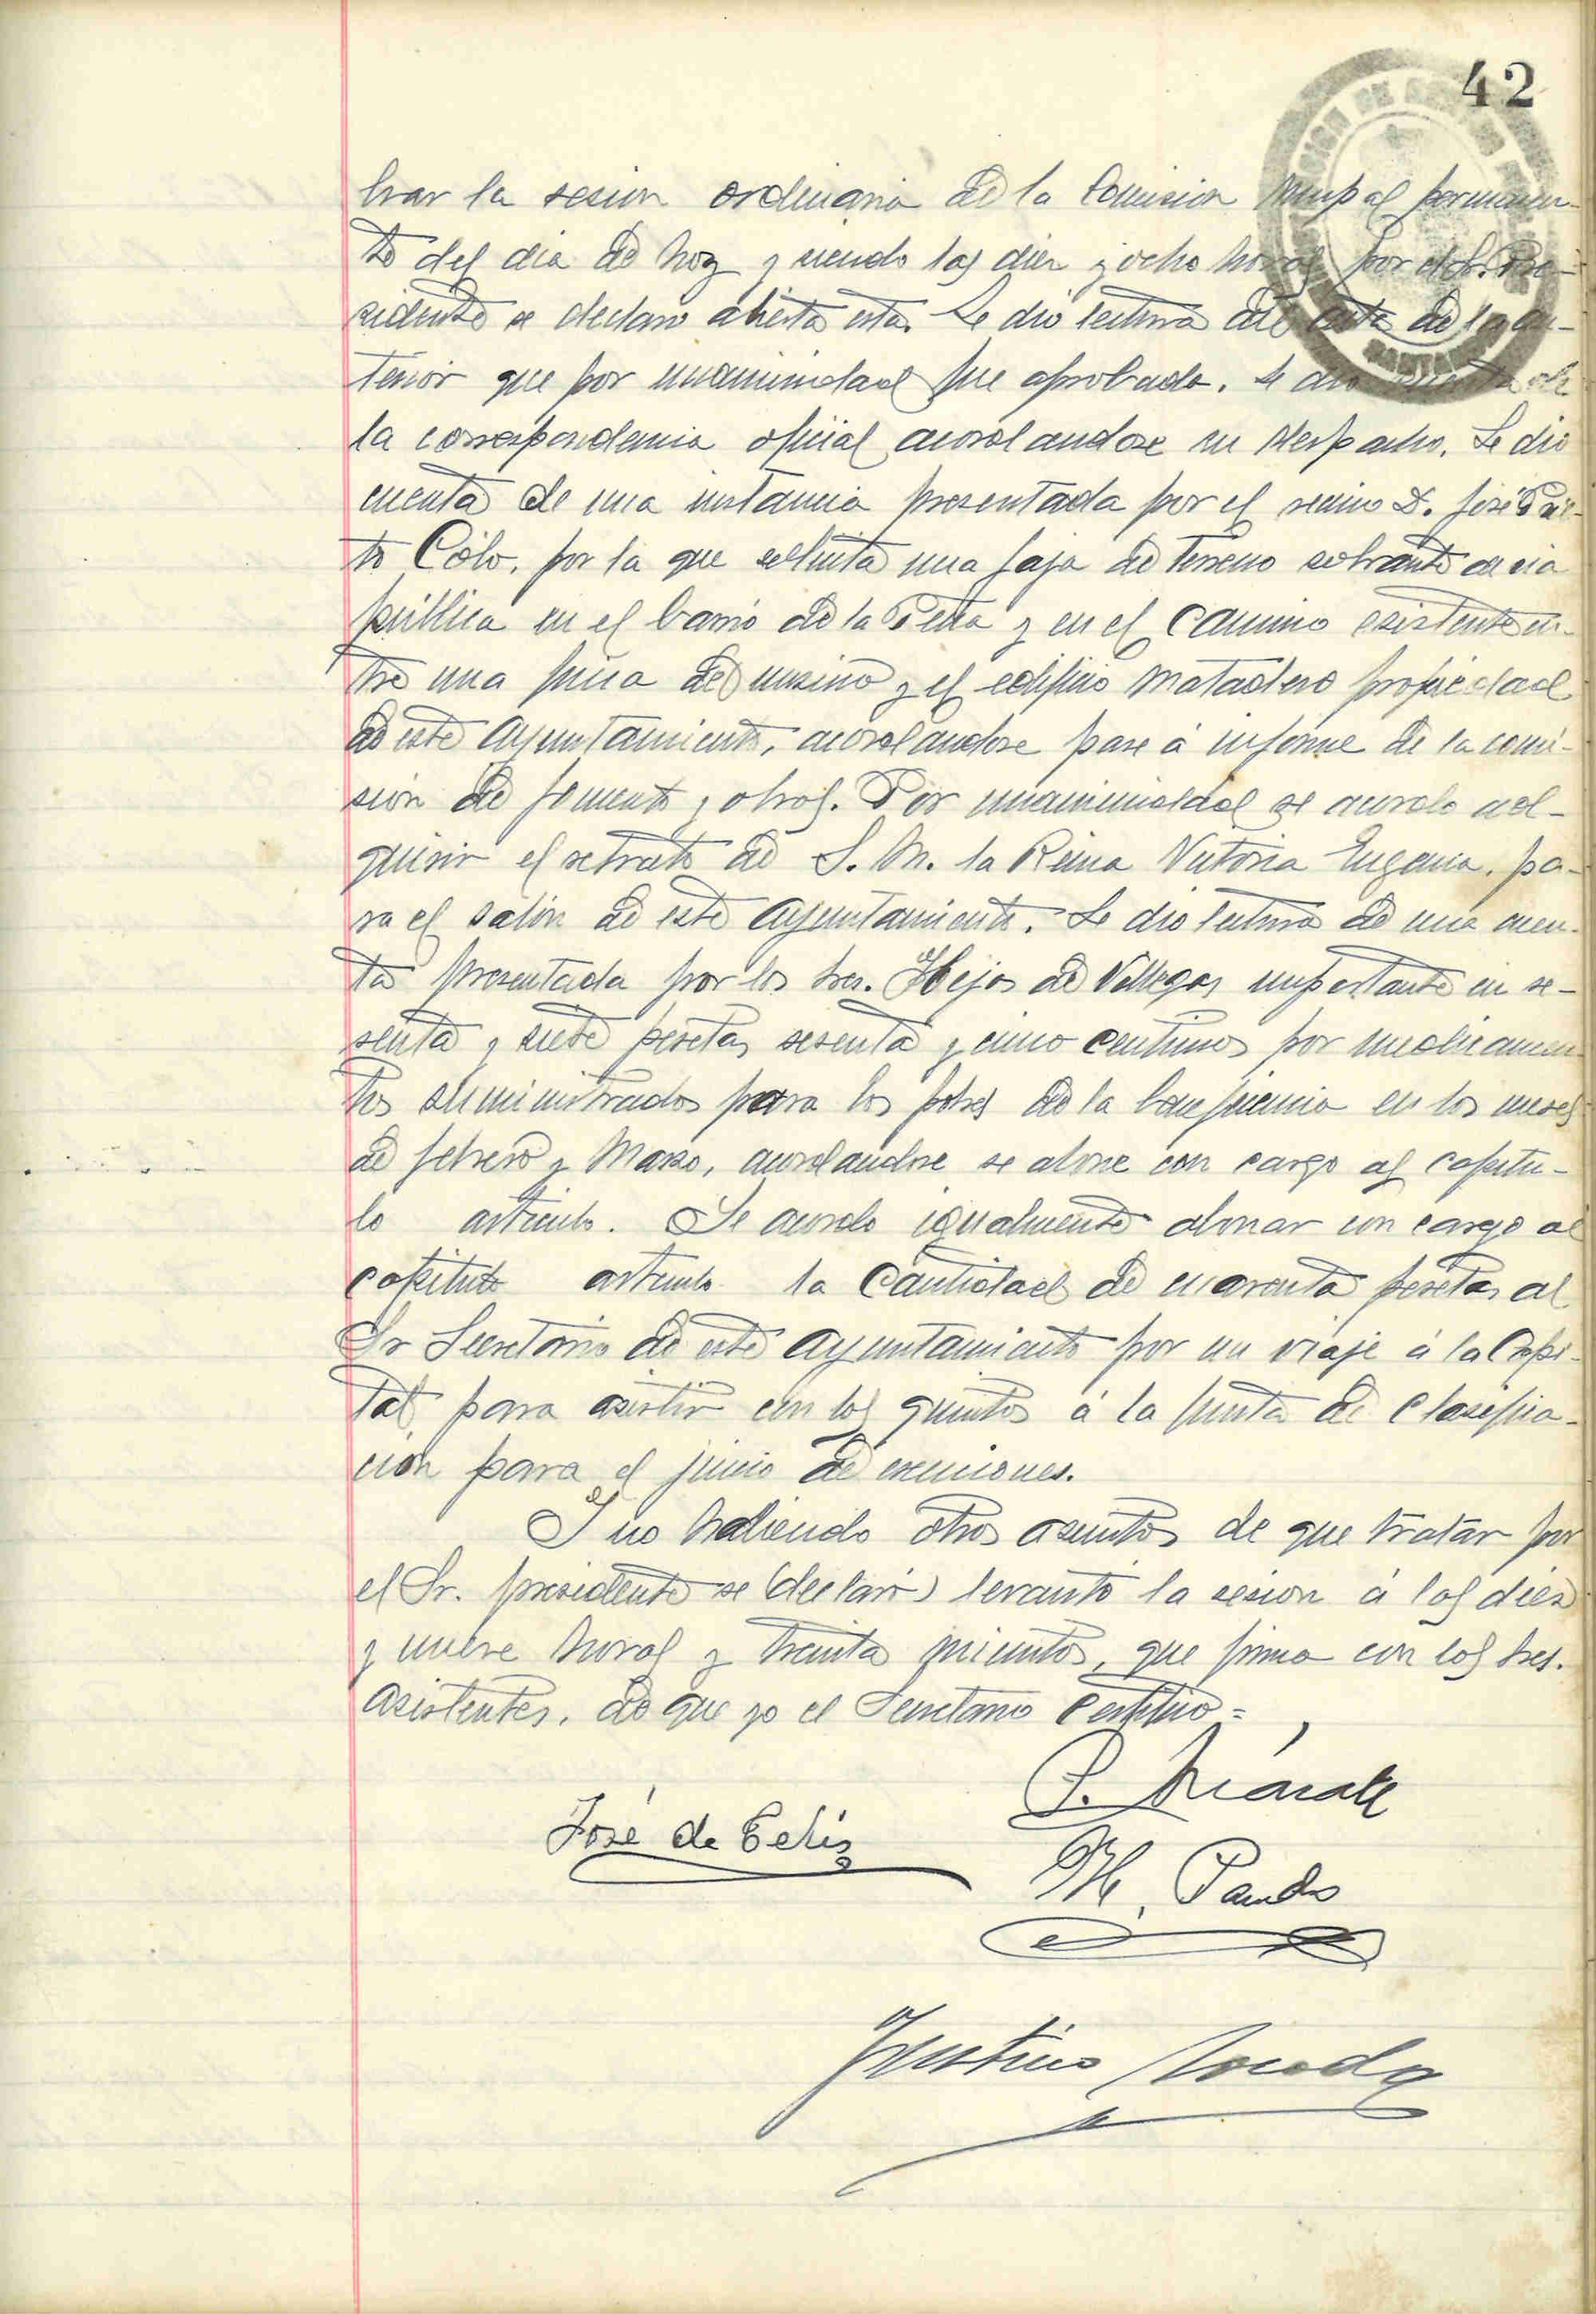 42
brar la sesion ordinaria de la Comision mupal permanen-
te del dia de hoy y siendo las diez y ocho horas por el Sr. Pre-
sidente se declaro abierta esta. Se dio lectura del acta de la an-
terior que por unanimidad fue aprobada. Se dio cuenta de
la correspondencia oficial acordandose su despacho. Se dio
cuenta de una instancia presentada por el vecino D. José
por la que solicita una faja de terreno sobrante de via
pública en el barrio de la y en el camino existente en-
tre una finca del mismo y el edificio matadero propiedad
de este Ayuntamiento, acordandose pase á informe de la comi-
sion de fomento y obras. Por unanimidad se acordo ad-
quirir el retrato de S. M. la Reina Victoria Eugenia, pa-
ra el salón de este Ayuntamiento. Se dio lectura de una cuen-
ta presentada por los Sres. Hijos de Villegas importante en se-
senta y siete pesetas sesenta y cinco centimos por medicamen-
tos suministrados para los pobres de la beneficencia en los meses
de febrero y Marzo, acordandose se abone con cargo al capitu-
lo articulo. Se acordo igualmente abonar con cargo al
capitulo articulo la cantidad de cuarenta pesetas al
Sr Secretario de este Ayuntamiento por un viaje á la Capi-
tal para asistir con los quintos á la junta de clasifica-
ción para el juicio de exenciones.
Y no habiendo otros asuntos de que tratar por
el Sr. presidente se (declaró) levantó la sesion á las diez
y nueve horas y treinta minutos, que firma con los Sres.
asistentes, de que yo el Secretario certifico =
José de Celis
M. Pando